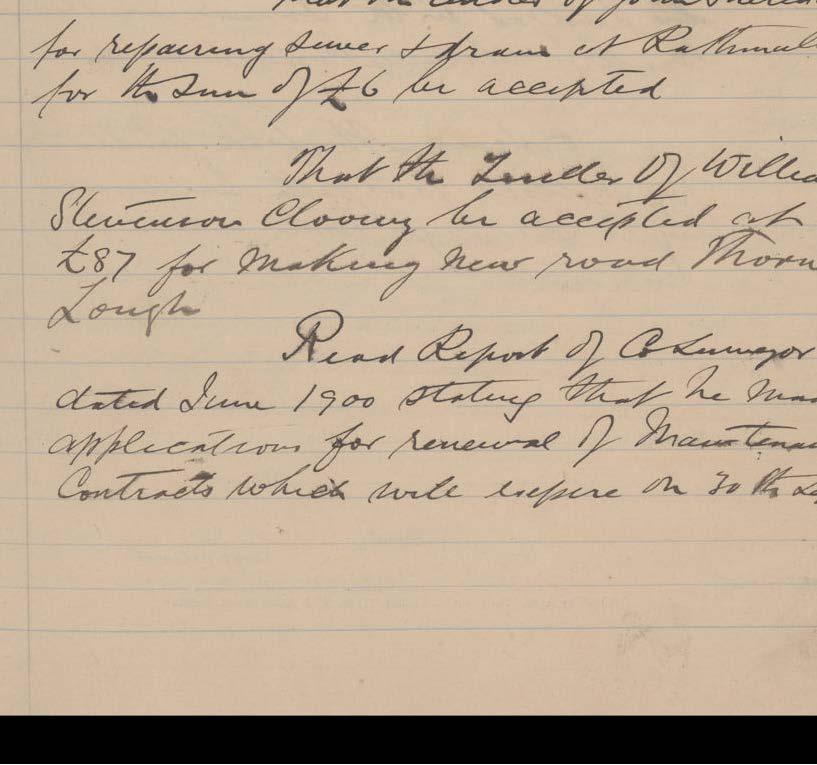 That the tender of John
for repairing sewer & drain at Rathmul
for the sum of £6 be accepted
That the Tender Of Willia
Stevenson Clooney be accepted at
£87 for Making New road Thorn
Lough
Read Report of Co Surveyor
dated June 1900 stating that he
applications for renewal of Maintenan
Contracts which will expire on 30 th